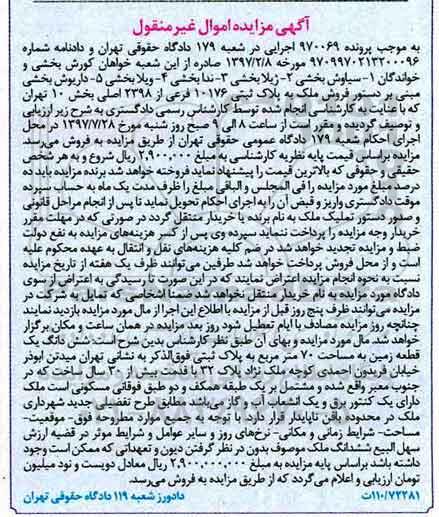 آگهی مزایده اموال غیر منقول
به موجب پرونده ۹۷۰۰۶۹ اجرایی در شعبه ۱۷۹ دادگاه حقوقی تهران و دادنامه شماره
۹۷۰۹۹۷۰۲۱۳۲۰۰۰۹۶ مورخه ۱۳۹۷/۲/۸ صادره از این شعبه خواهان کورش بخشی و
خواندگان ۱- سیاوش بخشی ۲- ژیلا بخشی ۳- ندا بخشی ۴- ویلا بخشی ۵- داریوش بخشی
مبنی بر دستور فروش ملک به پلاک ثبتی ۱۰۱۷۶ فرعی از ۲۳۹۸ اصلی بخش ۱۰ تهران
که با عنایت به کارشناسی انجام شده توسط کارشناس رسمی دادگستری به شرح زیر ارزیابی
و توصیف گردیده و مقرر است از ساعت ۸ الی ۹ صبح روز شنبه مورخ ۱۳۹۷/۷/۲۸ در محل
اجرای احکام شعبه ۱۷۹ دادگاه عمومی حقوقی تهران از طریق مزایده به فروش می‌رسد.
مزایده براساس قیمت پایه نظریه کارشناسی به مبلغ ۲,۹۰۰,۰۰۰ ریال شروع و به هر شخص
حقیقی و حقوقی که بالاترین قیمت را پیشنهاد نماید فروخته خواهد شد برنده مزایده باید ده
درصد مبلغ مورد مزایده را فی المجلس و الباقی مبلغ را ظرف مدت یک ماه به حساب سپرده
موقت دادگستری واریز و قبض آن را به اجرای احکام تحویل نماید تا پس از انجام مراحل قانونی
و صدور دستور تملیک ملک به نام برنده یا خریدار منتقل گردد در صورتی که در مهلت مقرر
خریدار وجه مزایده را پرداخت ننماید سپرده وی پس از کسر هزینه‌های مزایده به نفع دولت
ضبط و مزایده تجدید خواهد شد در ضم کلیه هزینه‌های نقل و انتقال به عهده محکوم علیه
است و از محل فروش پرداخت خواهد شد طرفین می‌توانند ظرف یک هفته از تاریخ مزایده
نسبت به نحوه انجام مزایده اعتراض نمایند که در این صورت تا رسیدگی به اعتراض از سوی
دادگاه مورد مزایده به نام خریدار منتقل نخواهد شد ضمنا اشخاصی که تمایل به شرکت در
مزایده می‌توانند ظرف پنج روز قبل از مزایده با اطلاع این اجرا از مال مورد مزایده بازدید نمایند
چنانچه روز مزایده مصادف با ایام تعطیل شود روز بعد مزایده در همان ساعت و مکان برگزار
خواهد شد. مال مورد مزایده و بهای آن طبق نظر کارشناس بدین شرح است: شش دانگ یک
قطعه زمین به مساحت ۷۰ متر مربع به پلاک ثبتی فوق‌الذکر به نشانی تهران میدتن ابوذر
خیابان فریدون احمدی کوچه ملک نژاد پلاک ۳۲ با قدمت بیش از ۳۰ سال ساخت که در
جنوب معبر واقع شده و مشتمل بر یک طبقه همکف و دو طبق فوقانی مسکونی است ملک
دارای یک کنتور برق و یک انشعاب آب و گاز می‌باشد مطابق طرح تفضیلی جدید شهرداری
ملک در محدوده بافن ناپایدار قرار دارد. با توجه به جمیع موارد مطروحه فوق- موقعیت-
مساحت- شرایط زمانی و مکانی- نرخ‌های روز و سایر عوامل و شرایط موثر در قضیه ارزش
سهل البیع ششدانگ ملک موصوف بدون در نظر گرفتن دیون و تعهداتی که ممکن است وجود
داشته باشد براساس پایه مزایده به مبلغ ۲,۹۰۰,۰۰۰,۰۰۰ ریال معادل دویست و نود میلیون
تومان ارزیابی و اعلام می‌گردد که از طریق مزایده به فروش می‌رسد.
۱۱۰/۷۲۲۸۱ت دادورز شعبه ۱۱۹ دادگاه حقوقی تهران